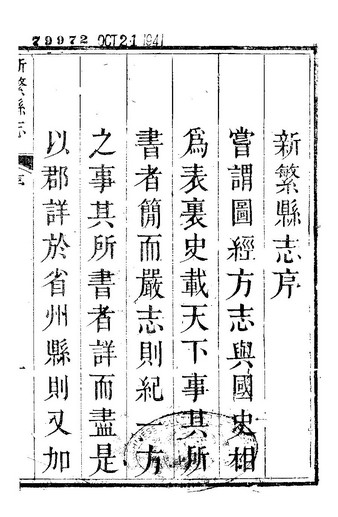 79972 OCT 21 1941
新繁縣志序
嘗謂圖經方志與國史相
為表裏史載天下事其所
書者簡而嚴志則紀一方
之事其所書者詳而盡是
以郡詳於省州縣則又加
新繁縣志